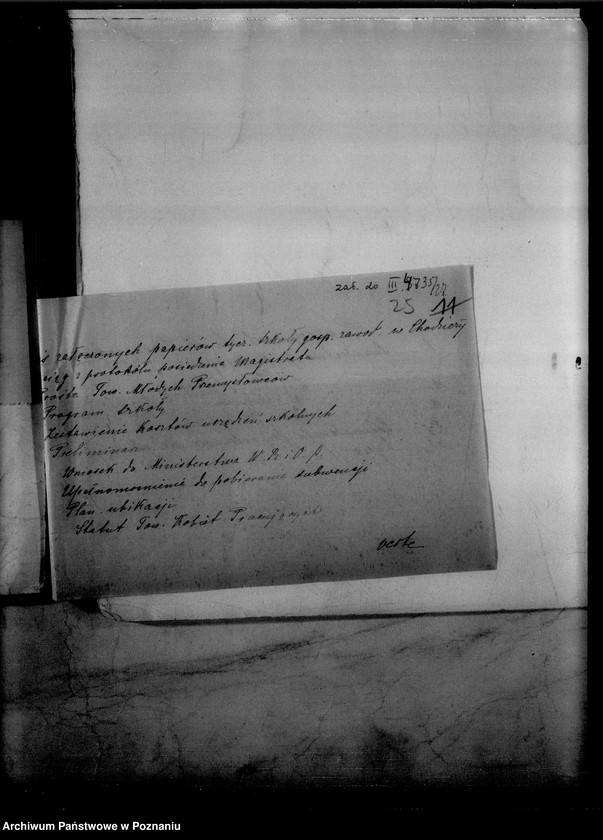 zał. do III 4735/27
25 11
is załączonych papierów tycz. szkoły gosp. zawod. w Chodzieży
ciąg z protokółu posiedzenia Magistratu
Prośba Tow. Młodych Przemysłowców
Program szkoły
Zestawienie kosztów urządzeń szkolnych
Preliminarz
Wniosek do Ministerstwa W. R. i O. P.
Upełnomocnienie do pobierania subwencji
Plan ubikacji
Statut Tow. Kobiet Pracujących
verte
Archiwum Państwowe w Poznaniu